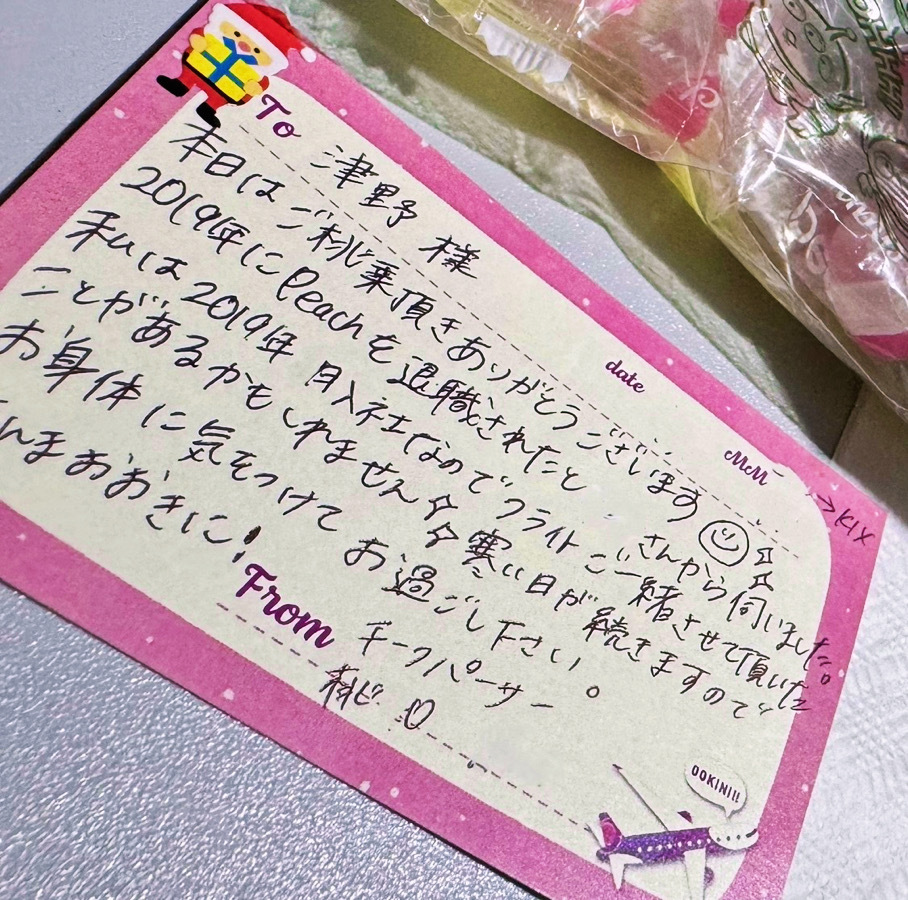 To 津野 様
date
MM → KIX
本日はご桃乗頂きありがとうございます
2019年にPeachを退職されたと さんから伺いました。
私は2019年 月入社なのでフライトご一緒させて頂いた
ことがあるかもしれません 寒い日が続きますので
お身体に気をつけてお過ごし下さい。
んまおおきに!
From チーフパーサー
桃
OOKINI!!